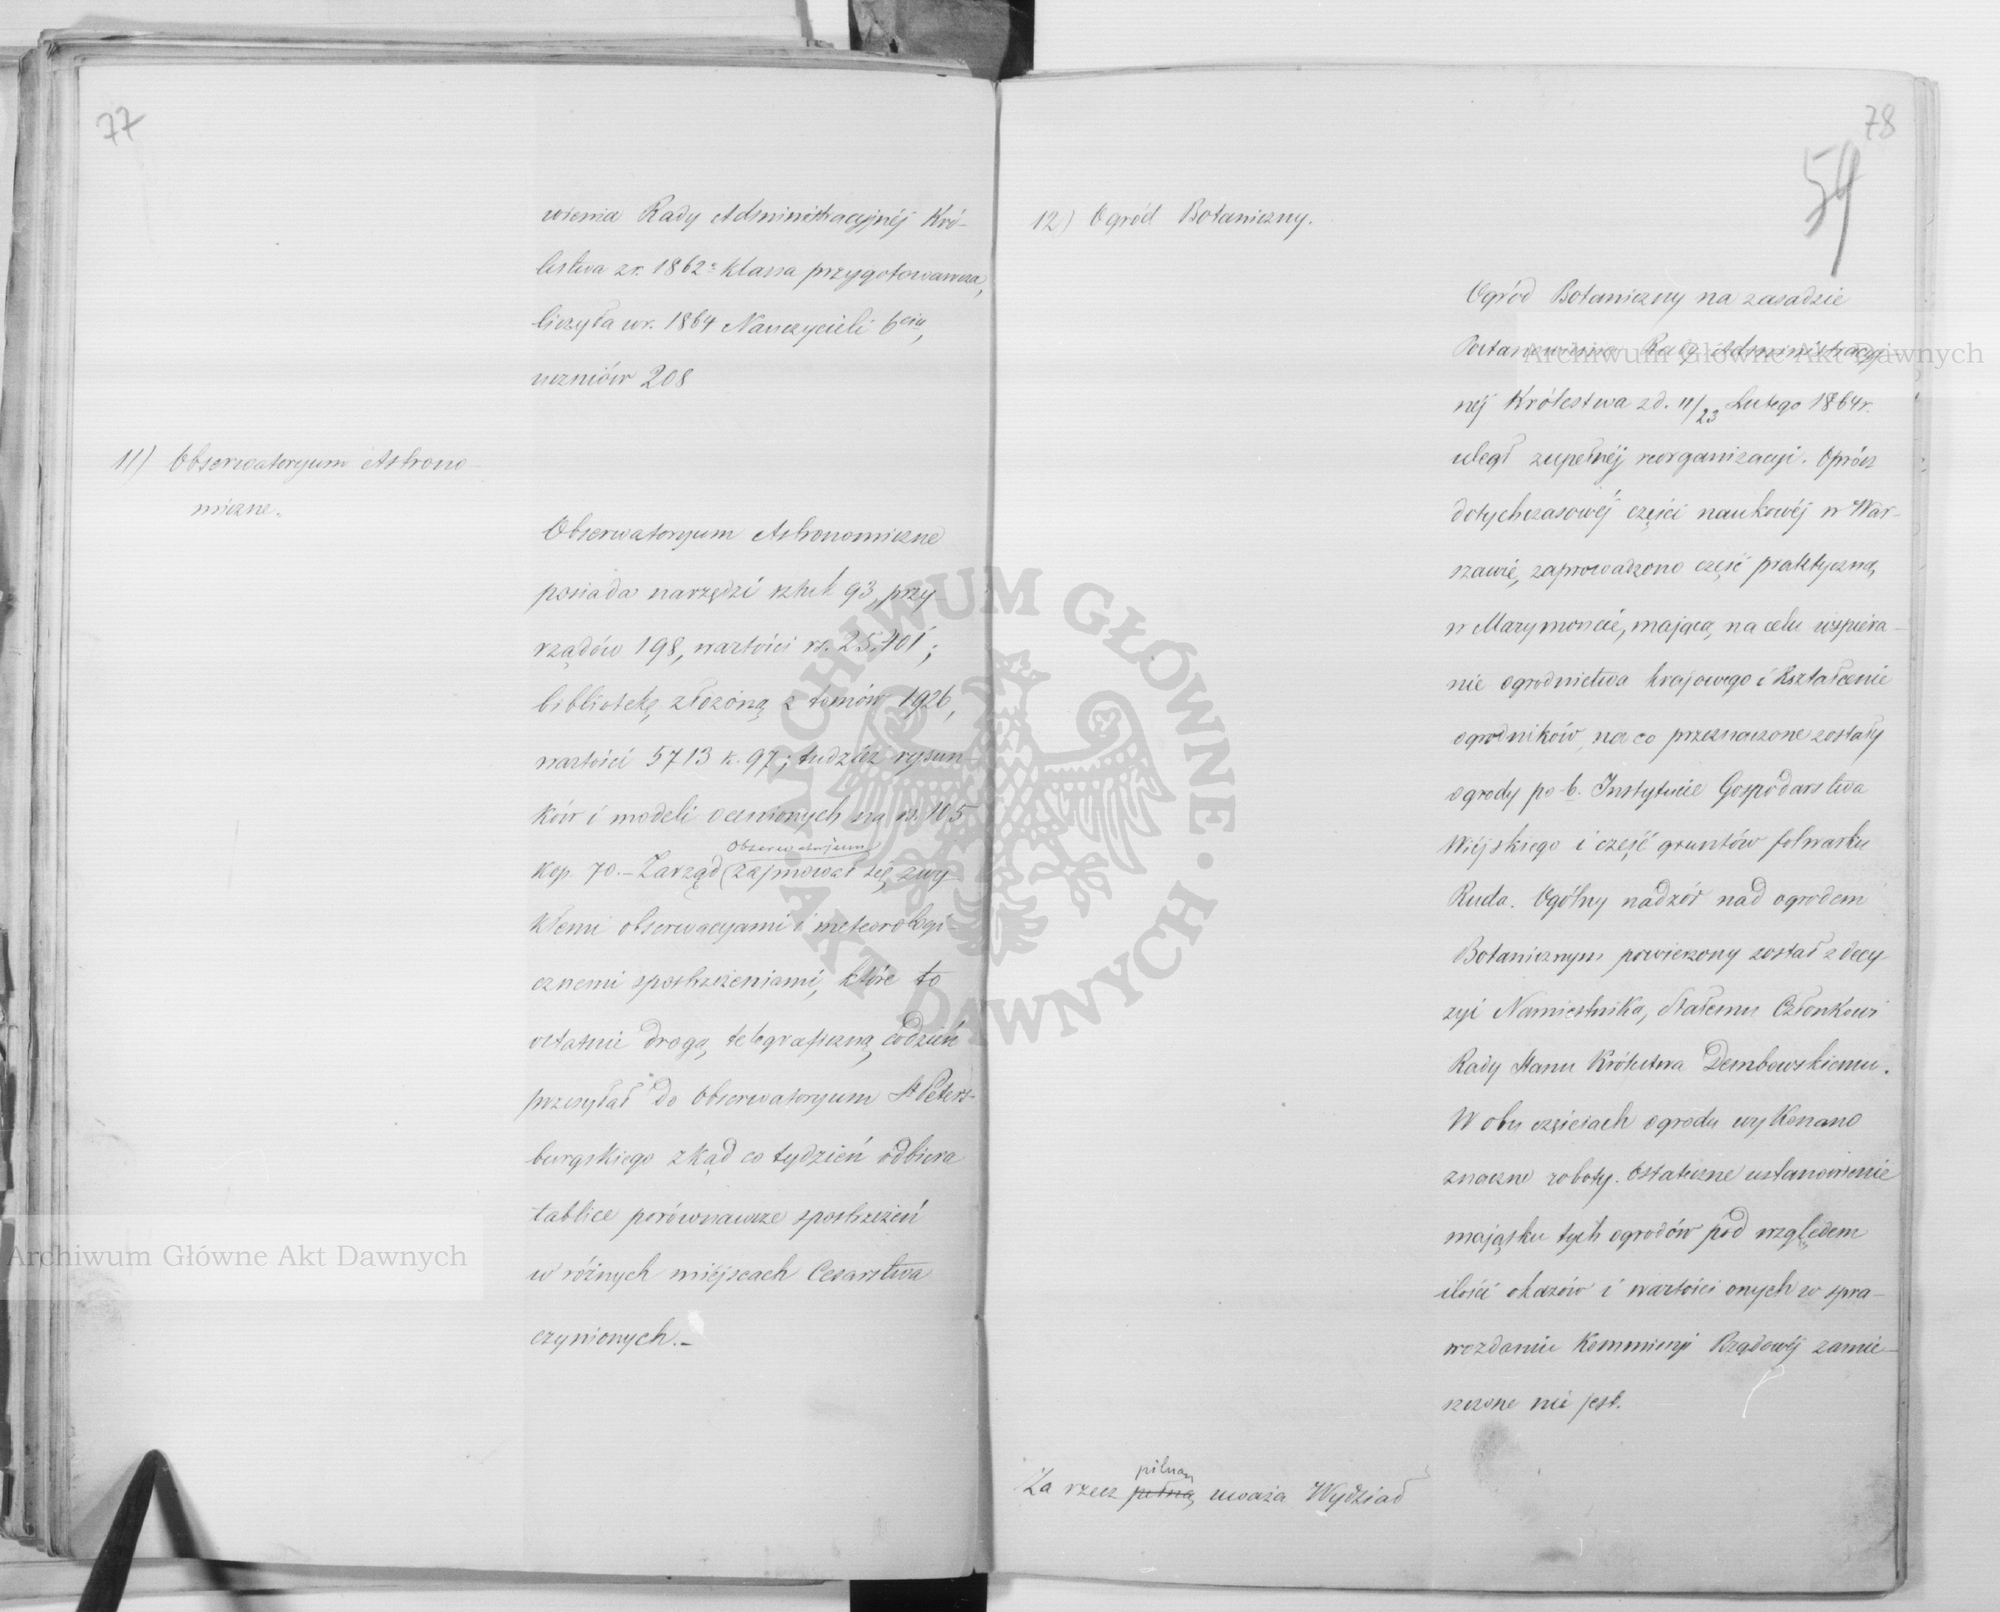 77
wienia Rady Administracyjnéj Kró-
lestwa z r. 1862 klassa przygotowawcza,
liczyła w r. 1864 Nauczycieli 6ciu,
uczniów 208
11) Obserwatoryum Astrono-
miczne.
Obserwatoryum Astronomiczne
posiada narzędzi sztuk 93, przy-
rządów 198, wartości rs. 25,401;
bibliotekę złożoną z tomów 1926,
wartości 5713 k. 97; tudzież rysun-
ków i modeli ocenionych na rs. 105
Obserwatoryum
kop. 70. – Zarząd (zajmował się zwy-
kłemi obserwacyami i meteorologi-
cznemi spostrzeżeniami, które to
ostatnie drogą telegraficzną codzień
przesyłał do Obserwatoryum St Peters-
burgskiego zkąd co tydzień odbiera
tablice porównawcze spostrzeżeń
w różnych miejscach Cesarstwa
czynionych. –
78
54
12) Ogród Botaniczny.
Ogród Botaniczny na zasadzie
Postanowienia Rady Administracyj-
néj Królestwa z d. 11/23 Lutego 1864 r.
uległ zupełnéj reorganizacyi. Oprócz
dotychczasowéj części naukowéj w War-
szawie, zaprowadzono część praktyczną
w Marymoncie, mającą na celu wspiera-
nie ogrodnictwa krajowego i kształcenie
ogrodników, na co przeznaczone zostały
ogrody po b. Instytucie Gospodarstwa
Wiejskiego i część gruntów folwarku
Ruda. Ogólny nadzór nad ogrodem
Botanicznym powierzony został z decy-
zyi Namiestnika, Stałemu Członkowi
Rady Stanu Królestwa Dembowskiemu.
W obu częściach ogrodu wykonano
znaczne roboty. Ostateczne ustanowienie
majątku tych ogrodów pod względem
ilości okazów i wartości onych w spra-
wozdaniu Kommissyi Rządowéj zamie-
szczone nie jest.
pilną
Za rzecz pełną uważa Wydział
Archiwum Główne Akt Dawnych
Archiwum Główne Akt Dawnych
ARCHIWUM GŁÓWNE · AKT DAWNYCH ·